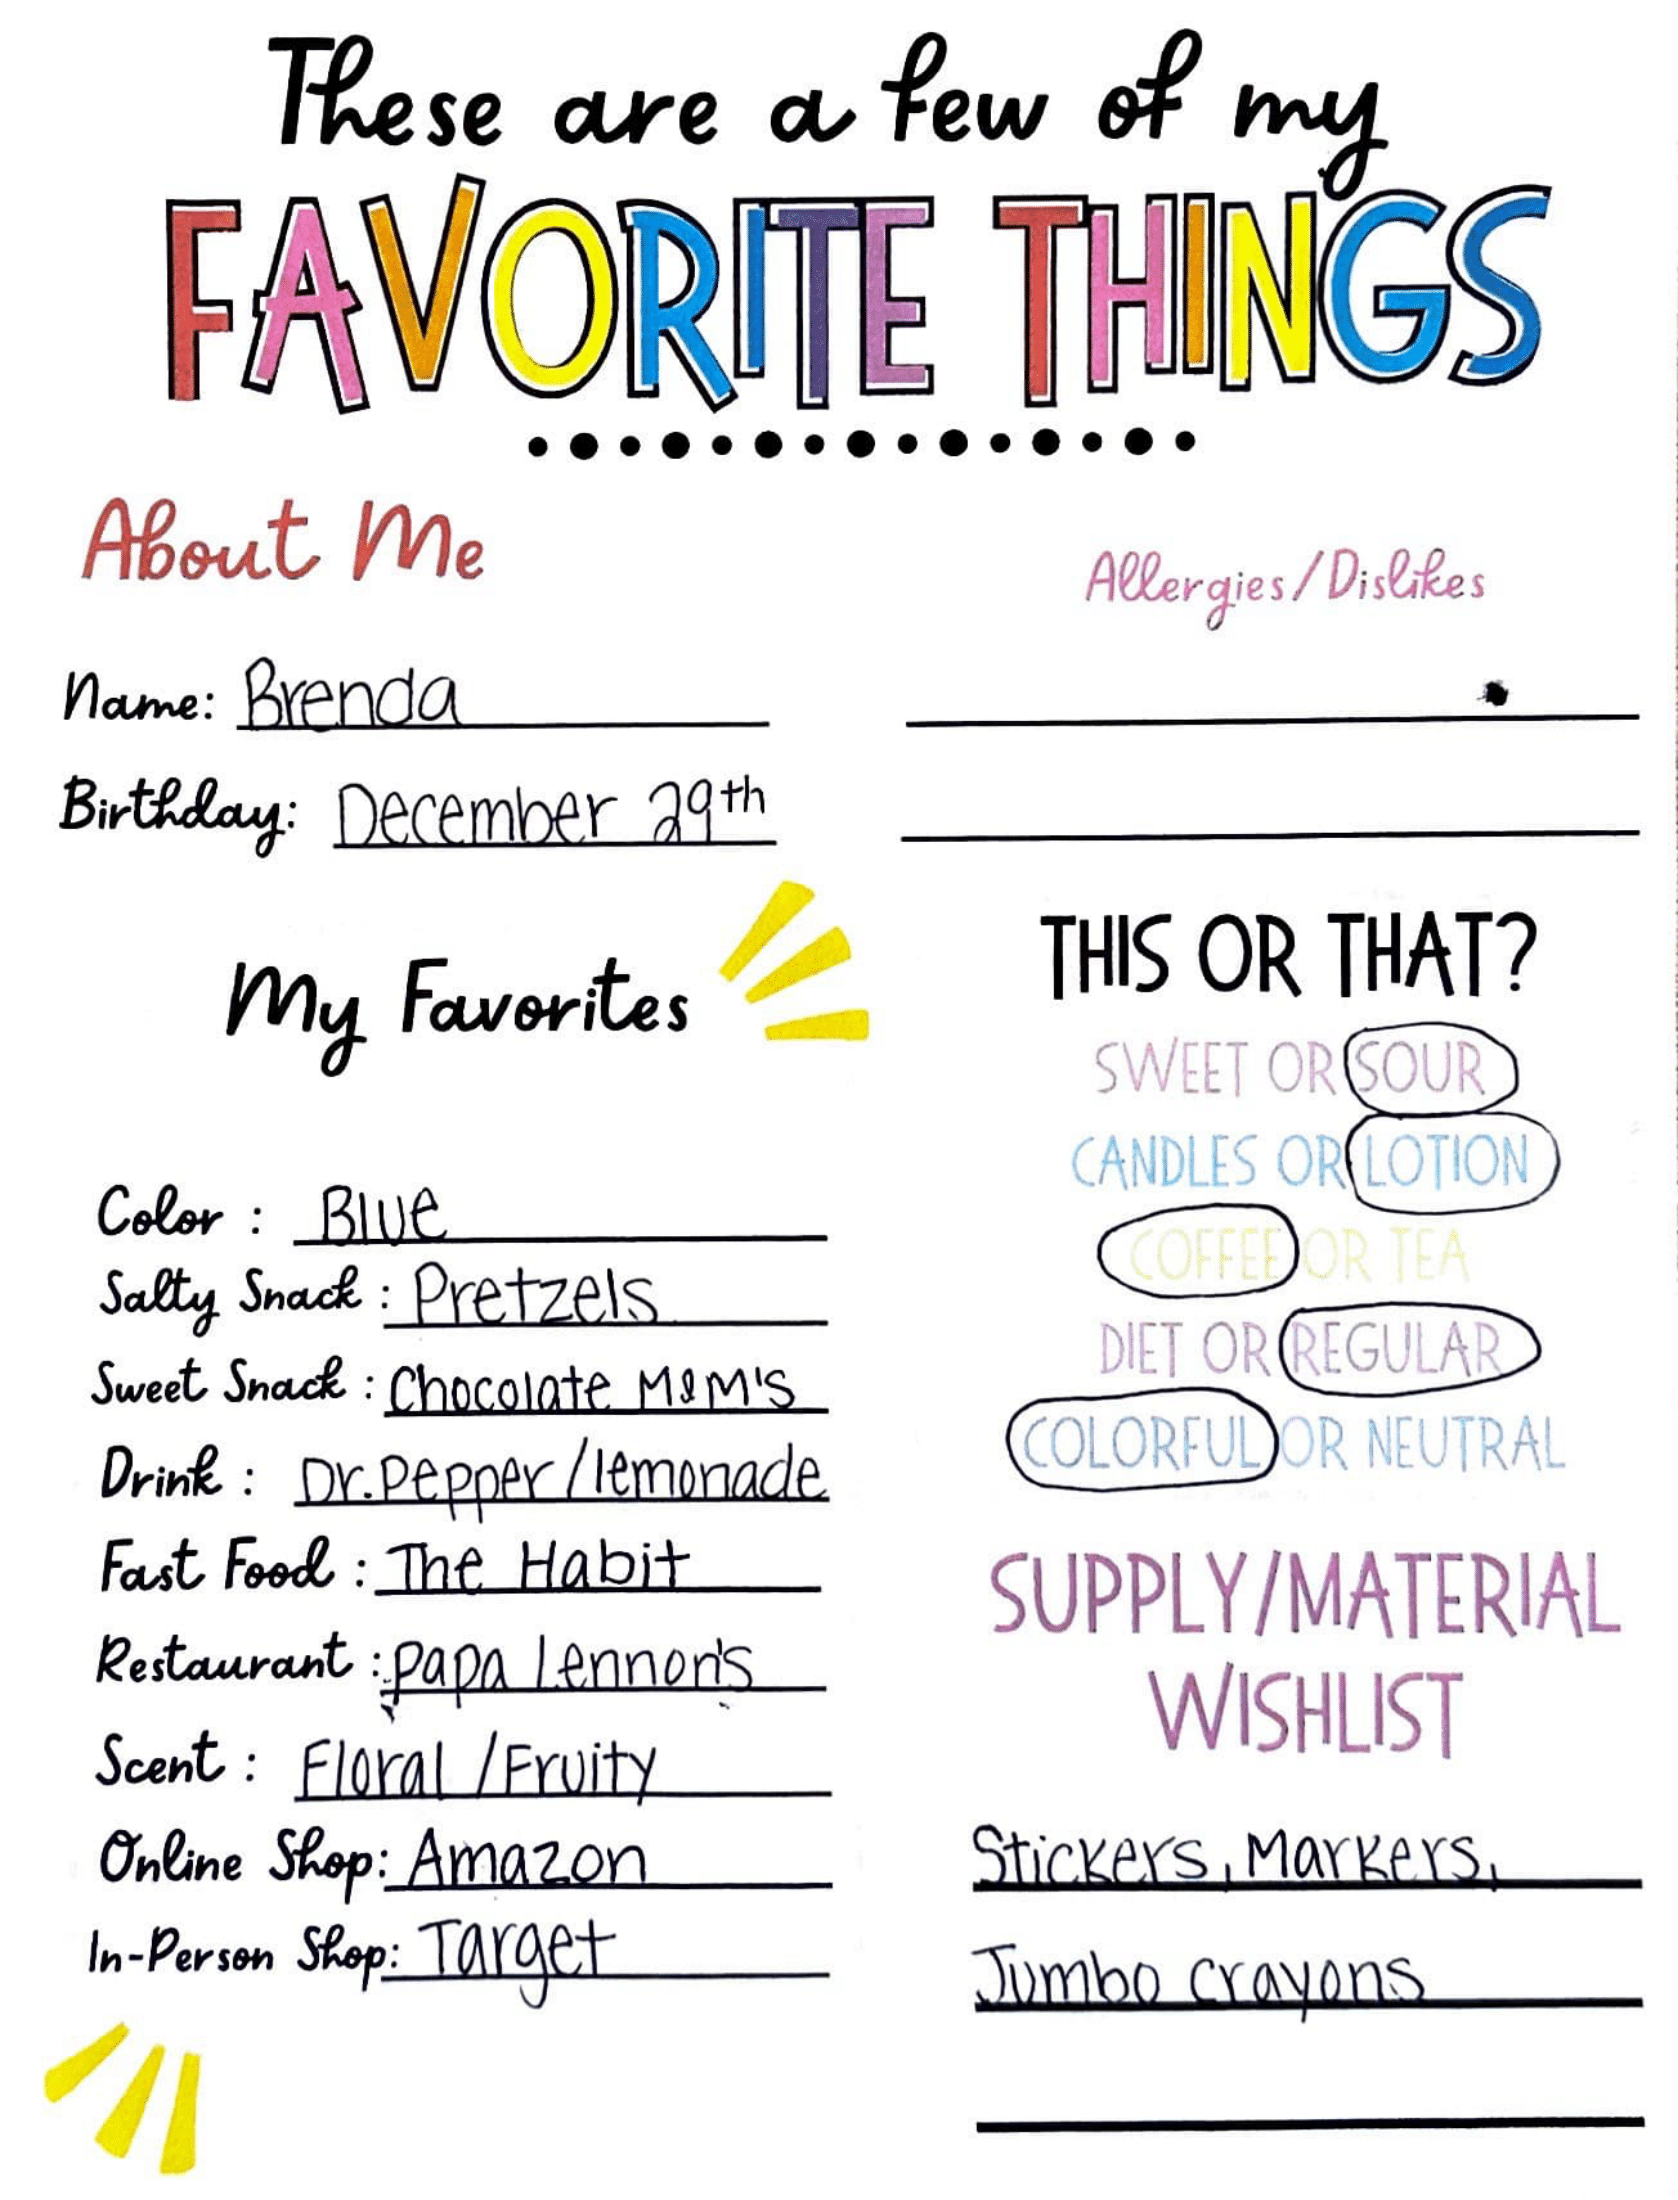 These are a few of my
FAVORITE THINGS
About Me
Name: Brenda
Birthday: December 29th
Allergies/Dislikes
My Favorites
Color : Blue
Salty Snack : Pretzels
Sweet Snack : Chocolate M&M's
Drink : Dr.Pepper/lemonade
Fast Food : The Habit
Restaurant : Papa Lennon's
Scent : Floral/Fruity
Online Shop: Amazon
In-Person Shop: Target
THIS OR THAT?
SWEET OR SOUR
CANDLES OR LOTION
COFFEE OR TEA
DIET OR REGULAR
COLORFUL OR NEUTRAL
SUPPLY/MATERIAL
WISHLIST
Stickers, Markers,
Jumbo crayons